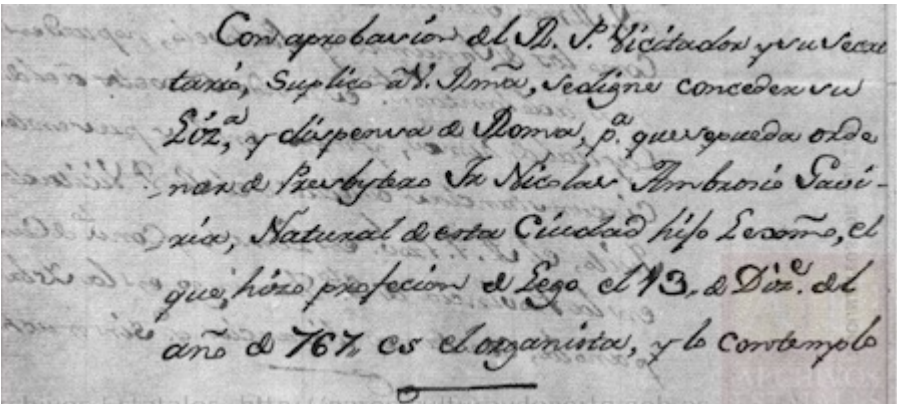 Con aprobasion del R. P. Vicitador y su Secre
tario, Suplico â V. Rmã, se digne conceder su
Liz.ª, y dispensa de Roma, p.ª que se pueda orde
nar de Presbytero Fr Nicolas Ambrosio Gavi-
ria, Natural de esta Ciudad hijo Lexmo, el
que, hizo profecion de Lego el 13,, de Diz.e del
año de 767,, es el organista, y lo contemplo